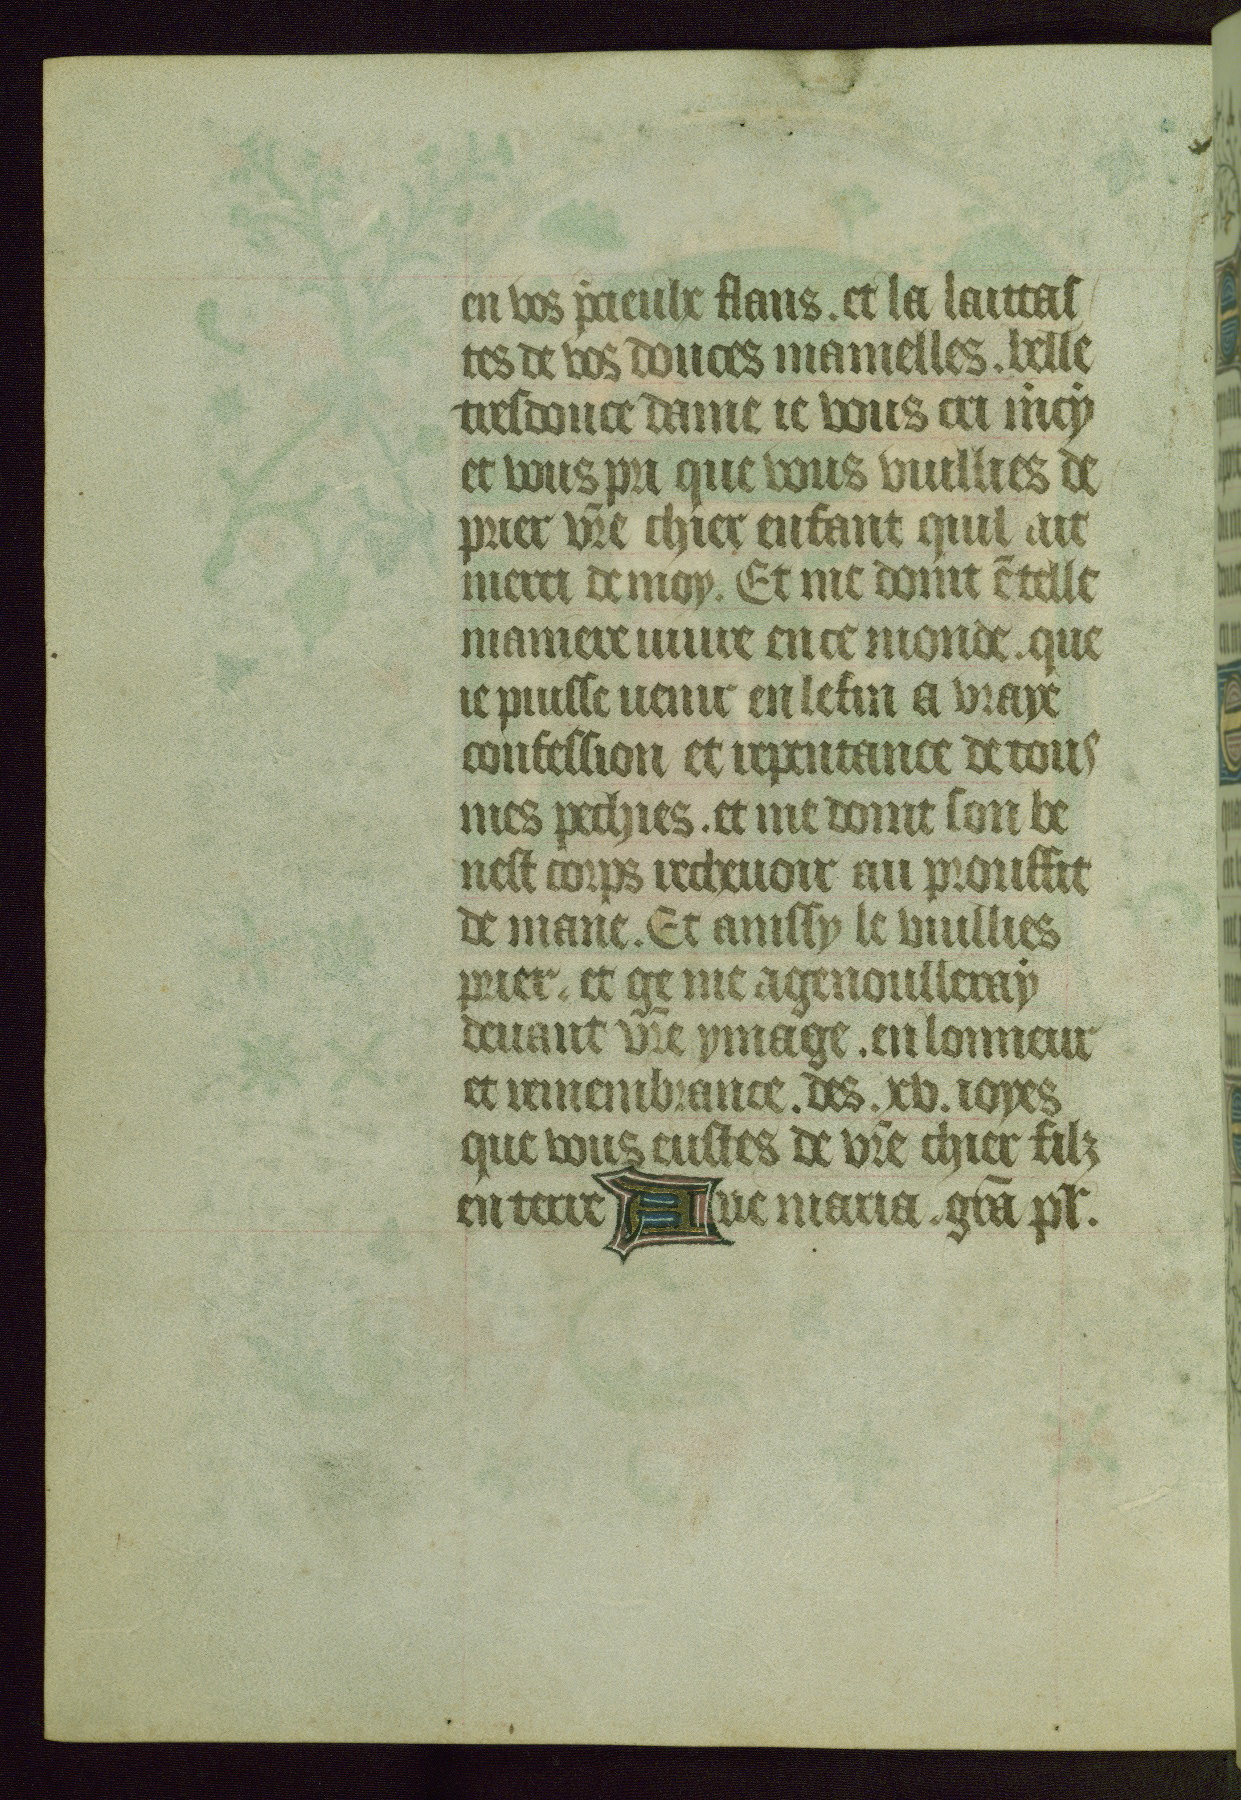 en vos p̃cieulx flans. et la laittas
tes de vos douces mamelles. belle
tresdouce dame ie vous cri m̃cy
et vous pri que vous vuillies de
prier vr̃e chier enfant quil ait
merci de moy. Et me doint ẽ telle
maniere uiure en ce monde. que
ie puisse uenir en le fin a vraye
confession et repentance de tous
mes pechies. et me doint son be
nest corps rechevoir au prouffit
de mame. Et aussy le vuillies
prier. et ge me agenoulleray
deuant vr̃e ymage. en lonneur
et remembrance. des. xv. ioyes
que vous eustes de vr̃e chier filz
en terre Aue maria. grã pl̃.